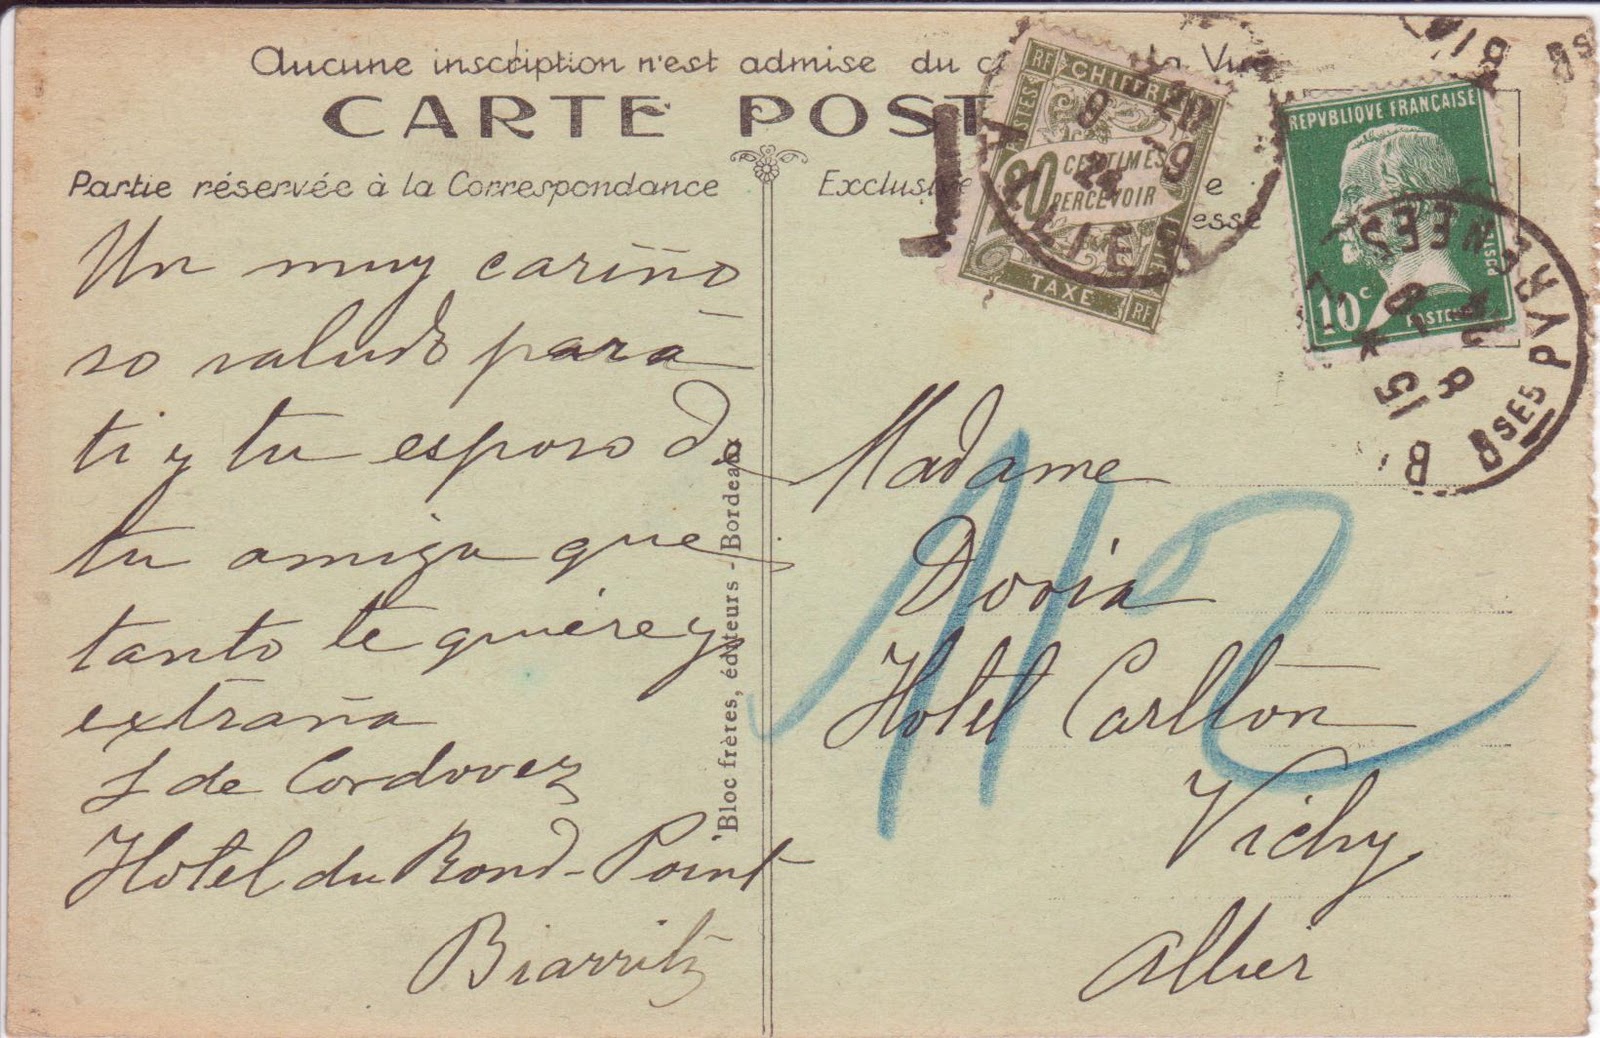 Aucune inscription n'est admise du c la Vue
CARTE POST
Partie réservée à la Correspondance
Exclusive e
esse
Un muy cariño
so saludo para
ti y tu esposo de
tu amiga que
tanto te quiere y
extraña
L de Cordovez
Hotel du Rond-Point
Biarritz
Bloc frères, éditeurs - Bordeaux
Madame
Doria
Hotel Carlton
Vichy
Allier
RF CHIFFRE
POSTES
20 CENTIMES
PERCEVOIR
TAXE RF
T
ALLIER
REPVBLIQVE FRANÇAISE
10c
POSTES
POSTES
BSES PYRENEES